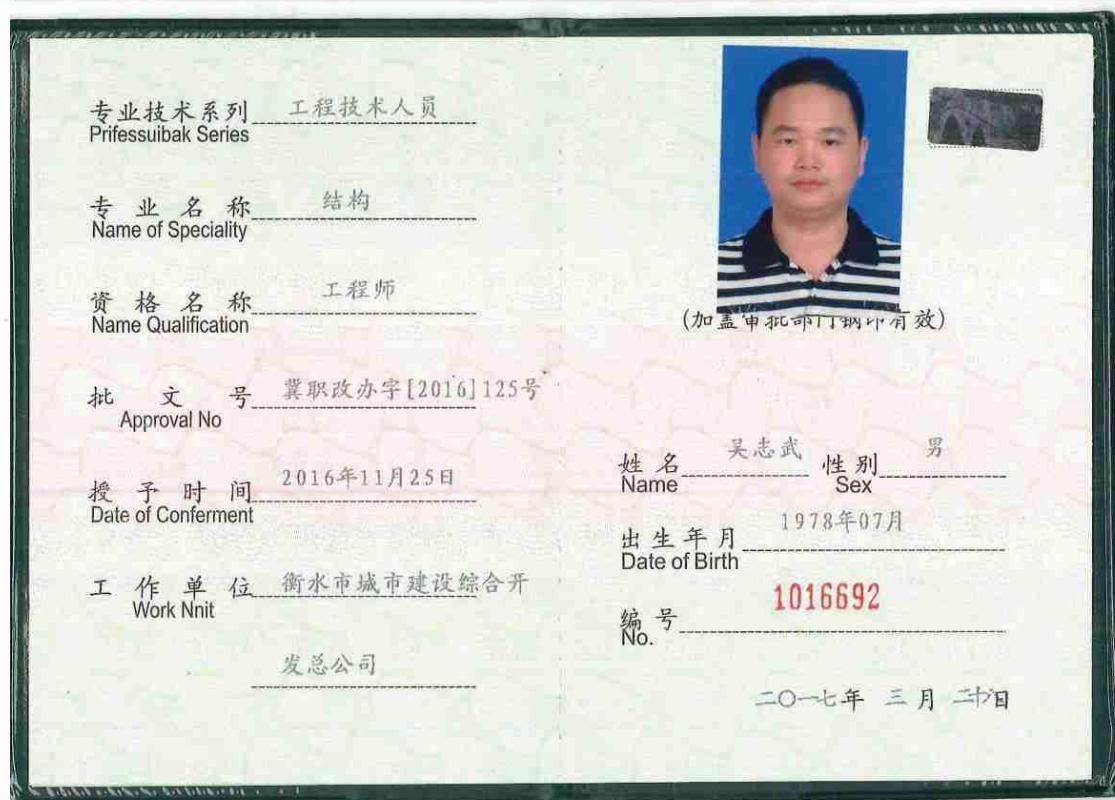 专业技术系列 工程技术人员
Prifessuibak Series
专业名称 结构
Name of Speciality
资格名称 工程师
Name Qualification
批文号 冀职改办字[2016]125号
Approval No
授予时间 2016年11月25日
Date of Conferment
工作单位 衡水市城市建设综合开
Work Nnit
发总公司
(加盖审批部门钢印有效)
姓名 吴志武 性别 男
Name Sex
出生年月 1978年07月
Date of Birth
编号 1016692
No.
二〇一七年 三月